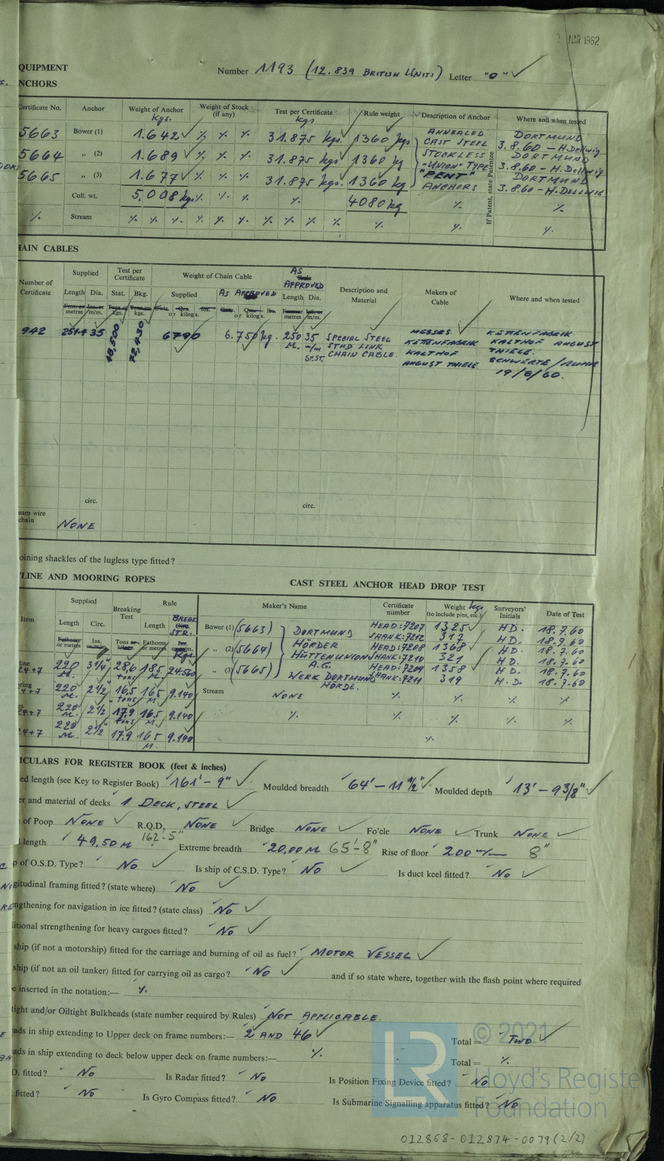 MAR 1962
QUIPMENT
Number 1193 (12.839 BRITISH UNITS) Letter "O"
NCHORS
Certificate No. Anchor Weight of Anchor Kgs. Weight of Stock (if any) Test per Certificate Kgs. Rule weight Description of Anchor If Patent, state Patentee Where and when tested
5663 Bower (1) 1.642 % % % 31.875 kgs. 1360 kgs ANNEALED CAST STEEL DORTMUND 3.8.60 - H.Dellwig
5664 „ (2) 1.689 % % % 31.875 kgs. 1360 kg STOCKLESS "UNION" TYPE DORTMUND 3.8.60 - H.Dellwig
5665 „ (3) 1.677 % % % 31.875 kgs. 1360 kg "PENT" ANCHORS DORTMUND 3.8.60 - H.Dellwig
Coll. wt. 5,008 kgs % % % % 4080 kg % %
% Stream % % % % % % % % % % % % %
HAIN CABLES
Number of Certificate Supplied Length Dia. Test per Certificate Stat. Bkg. Weight of Chain Cable Supplied AS APPROVED AS APPROVED Length Dia. Description and Material Makers of Cable Where and when tested
942 35 48,500 72,450 6790 6.750 kg. 250 M. 35 m/m SP.ST. SPECIAL STEEL STUD LINK CHAIN CABLE. MESSRS KETTENFABRIK KALTHOF AUGUST THIELE KETTENFABRIK KALTHOF AUGUST THIELE. SCHWERTE/RUHR 19/8/60.
circ. circ.
eam wire
chain NONE
oining shackles of the lugless type fitted?
LINE AND MOORING ROPES
Item Supplied Length Circ. Breaking Test Rule Length BREAK. STR.
24+7 220 M. 3¼ 28,6 tons 185 M. 24.500
220 M. 2½ 16,5 tons 165 M. 9.140
24+7 220 M. 2½ 17,9 tons 165 M. 9.140
24+7 220 M. 2½ 17,9 165 M. 9.140
CAST STEEL ANCHOR HEAD DROP TEST
Maker's Name Certificate number Weight kgs (to include pins, etc.) Surveyors' Initials Date of Test
Bower (1) (5663) DORTMUND HEAD: 7207 1325 H.D. 18.7.60
HÖRDER SHANK: 7212 317 H.D. 18.7.60
„ (2) (5664) HÜTTENUNION HEAD: 7208 1368 H.D. 18.7.60
A.G. SHANK: 7210 321 H.D. 18.7.60
„ (3) (5665) WERK DORTMUND HEAD: 7209 1358 H.D. 18.7.60
HÖRDE. SHANK: 7211 319 H.D. 18.7.60
Stream NONE % % % %
% % % % %
%
ICULARS FOR REGISTER BOOK (feet & inches)
ed length (see Key to Register Book) 161' - 9" Moulded breadth 64' - 11½" Moulded depth 13' - 9⅜"
er and material of decks 1 DECK, STEEL
of Poop NONE R.Q.D. NONE Bridge NONE Fo'cle NONE Trunk NONE
162'-5"
length 49,50 M Extreme breadth 20,00 M 65'-8" Rise of floor 200 m/m 8"
p of O.S.D. Type? NO Is ship of C.S.D. Type? NO Is duct keel fitted? NO
gitudinal framing fitted? (state where) NO
engthening for navigation in ice fitted? (state class) NO
itional strengthening for heavy cargoes fitted? NO
ship (if not a motorship) fitted for the carriage and burning of oil as fuel? MOTOR VESSEL
ship (if not an oil tanker) fitted for carrying oil as cargo? NO and if so state where, together with the flash point where required
e inserted in the notation:— %
ight and/or Oiltight Bulkheads (state number required by Rules) NOT APPLICABLE.
ads in ship extending to Upper deck on frame numbers:— 2 AND 46 Total = TWO
ads in ship extending to deck below upper deck on frame numbers:— % Total = %
D. fitted? NO Is Radar fitted? NO Is Position Fixing Device fitted? NO
fitted? NO Is Gyro Compass fitted? NO Is Submarine Signalling apparatus fitted? NO
LR © 2021
Lloyd's Register
Foundation
012868-012874-0079 (2/2)